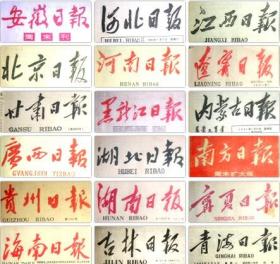 安徽日报
周末刊
河北日報
HEBEI RIBAO
江西日報
JIANGXI RIBAO
北京日报
河南日報
HENAN RIBAO
遼寧日報
LIAONING RIBAO
甘肃日報
GANSU RIBAO
黑龙江日報
内蒙古日報
廣西日報
GVANGJSIH YIZBAO
湖北日報
HUBEI RIBAO
南方日報
周末扩大版
貴州日報
GUIZHOU RIBAO
湖南日報
HUNAN RIBAO
寧夏日報
NINGXIA RIBAO
海南日报
吉林日報
JILIN RIBAO
青海日報
QINGHAI RIBAO